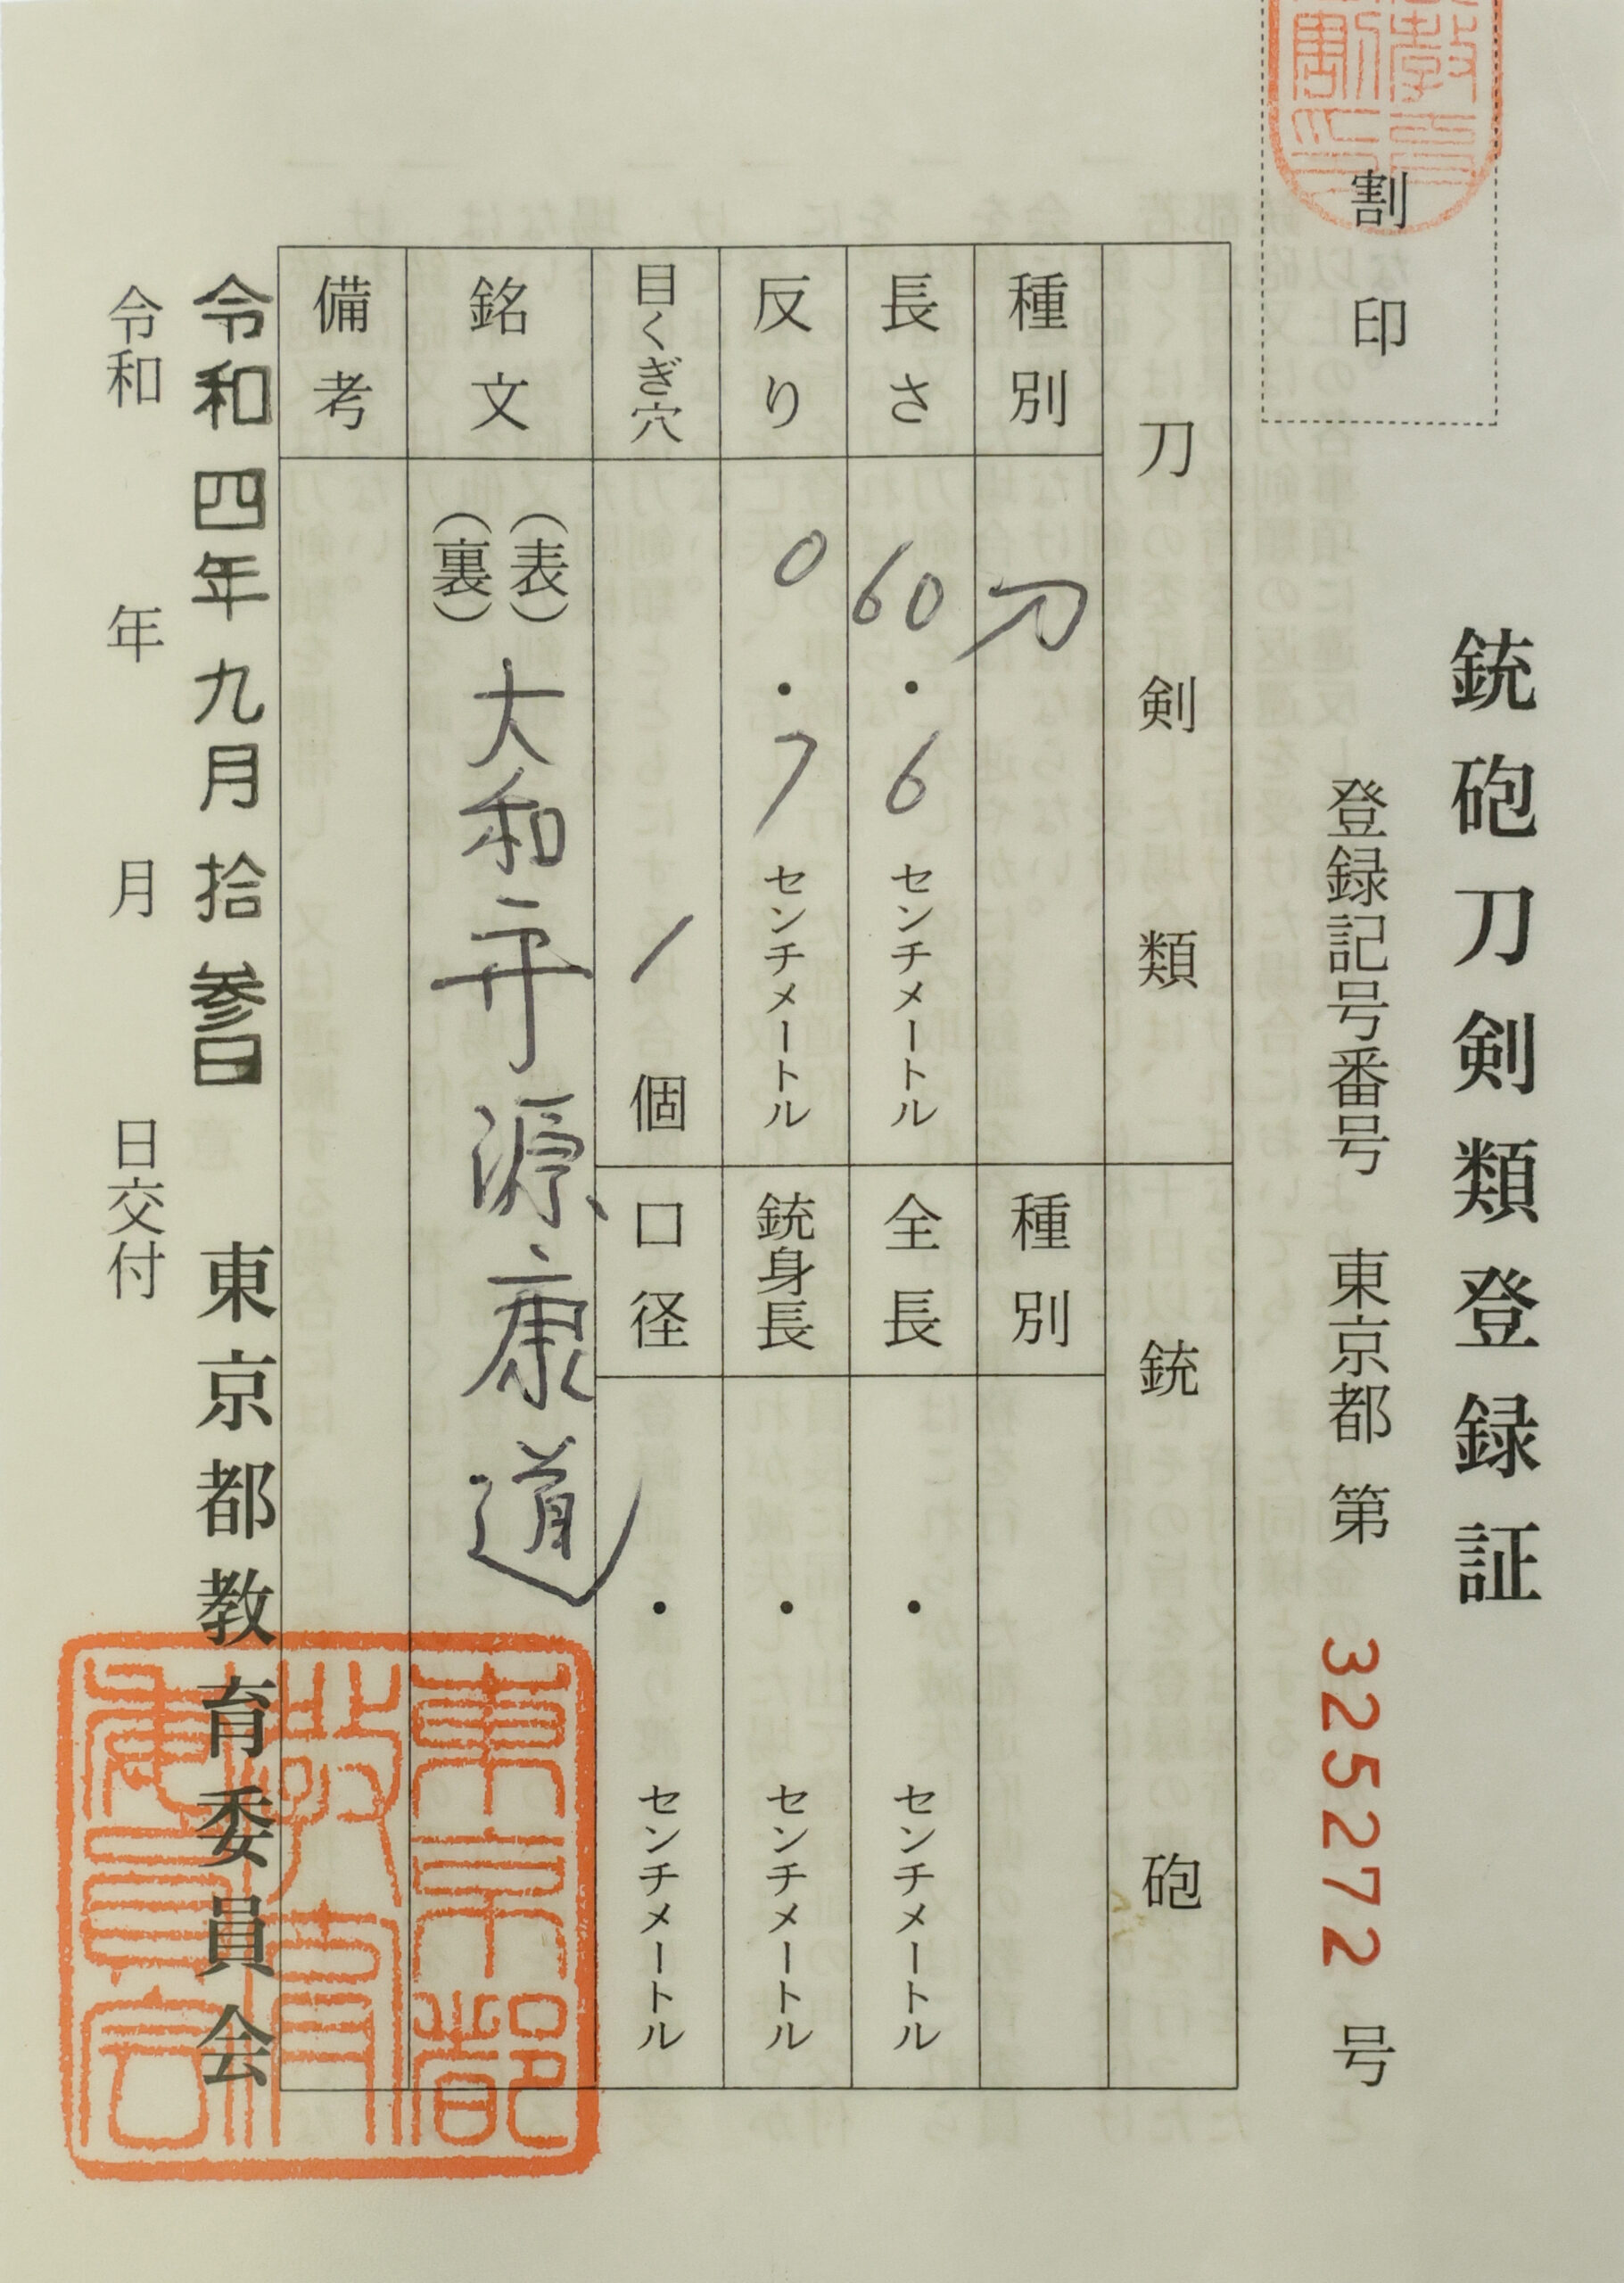 銃砲刀剣類登録証
割印
登録記号番号 東京都 第 325272 号
刀剣類
種別 刀
長さ 60.6 センチメートル
反り 0.7 センチメートル
目くぎ穴 1 個
銘文 (表) 大和守源康道
(裏)
備考
銃砲
種別
全長 . センチメートル
銃身長 . センチメートル
口径 . センチメートル
令和四年九月拾参日
東京都教育委員会
令和 年 月 日交付